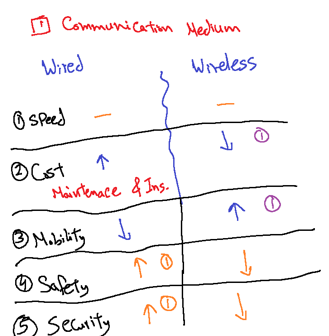 1 Communication Medium
Wired Wireless
① Speed — —
② Cost ↑ ↓ ①
Maintenace & Ins.
③ Mobility ↓ ↑ ①
④ Safety ↑ ① ↓
⑤ Security ↑ ① ↓